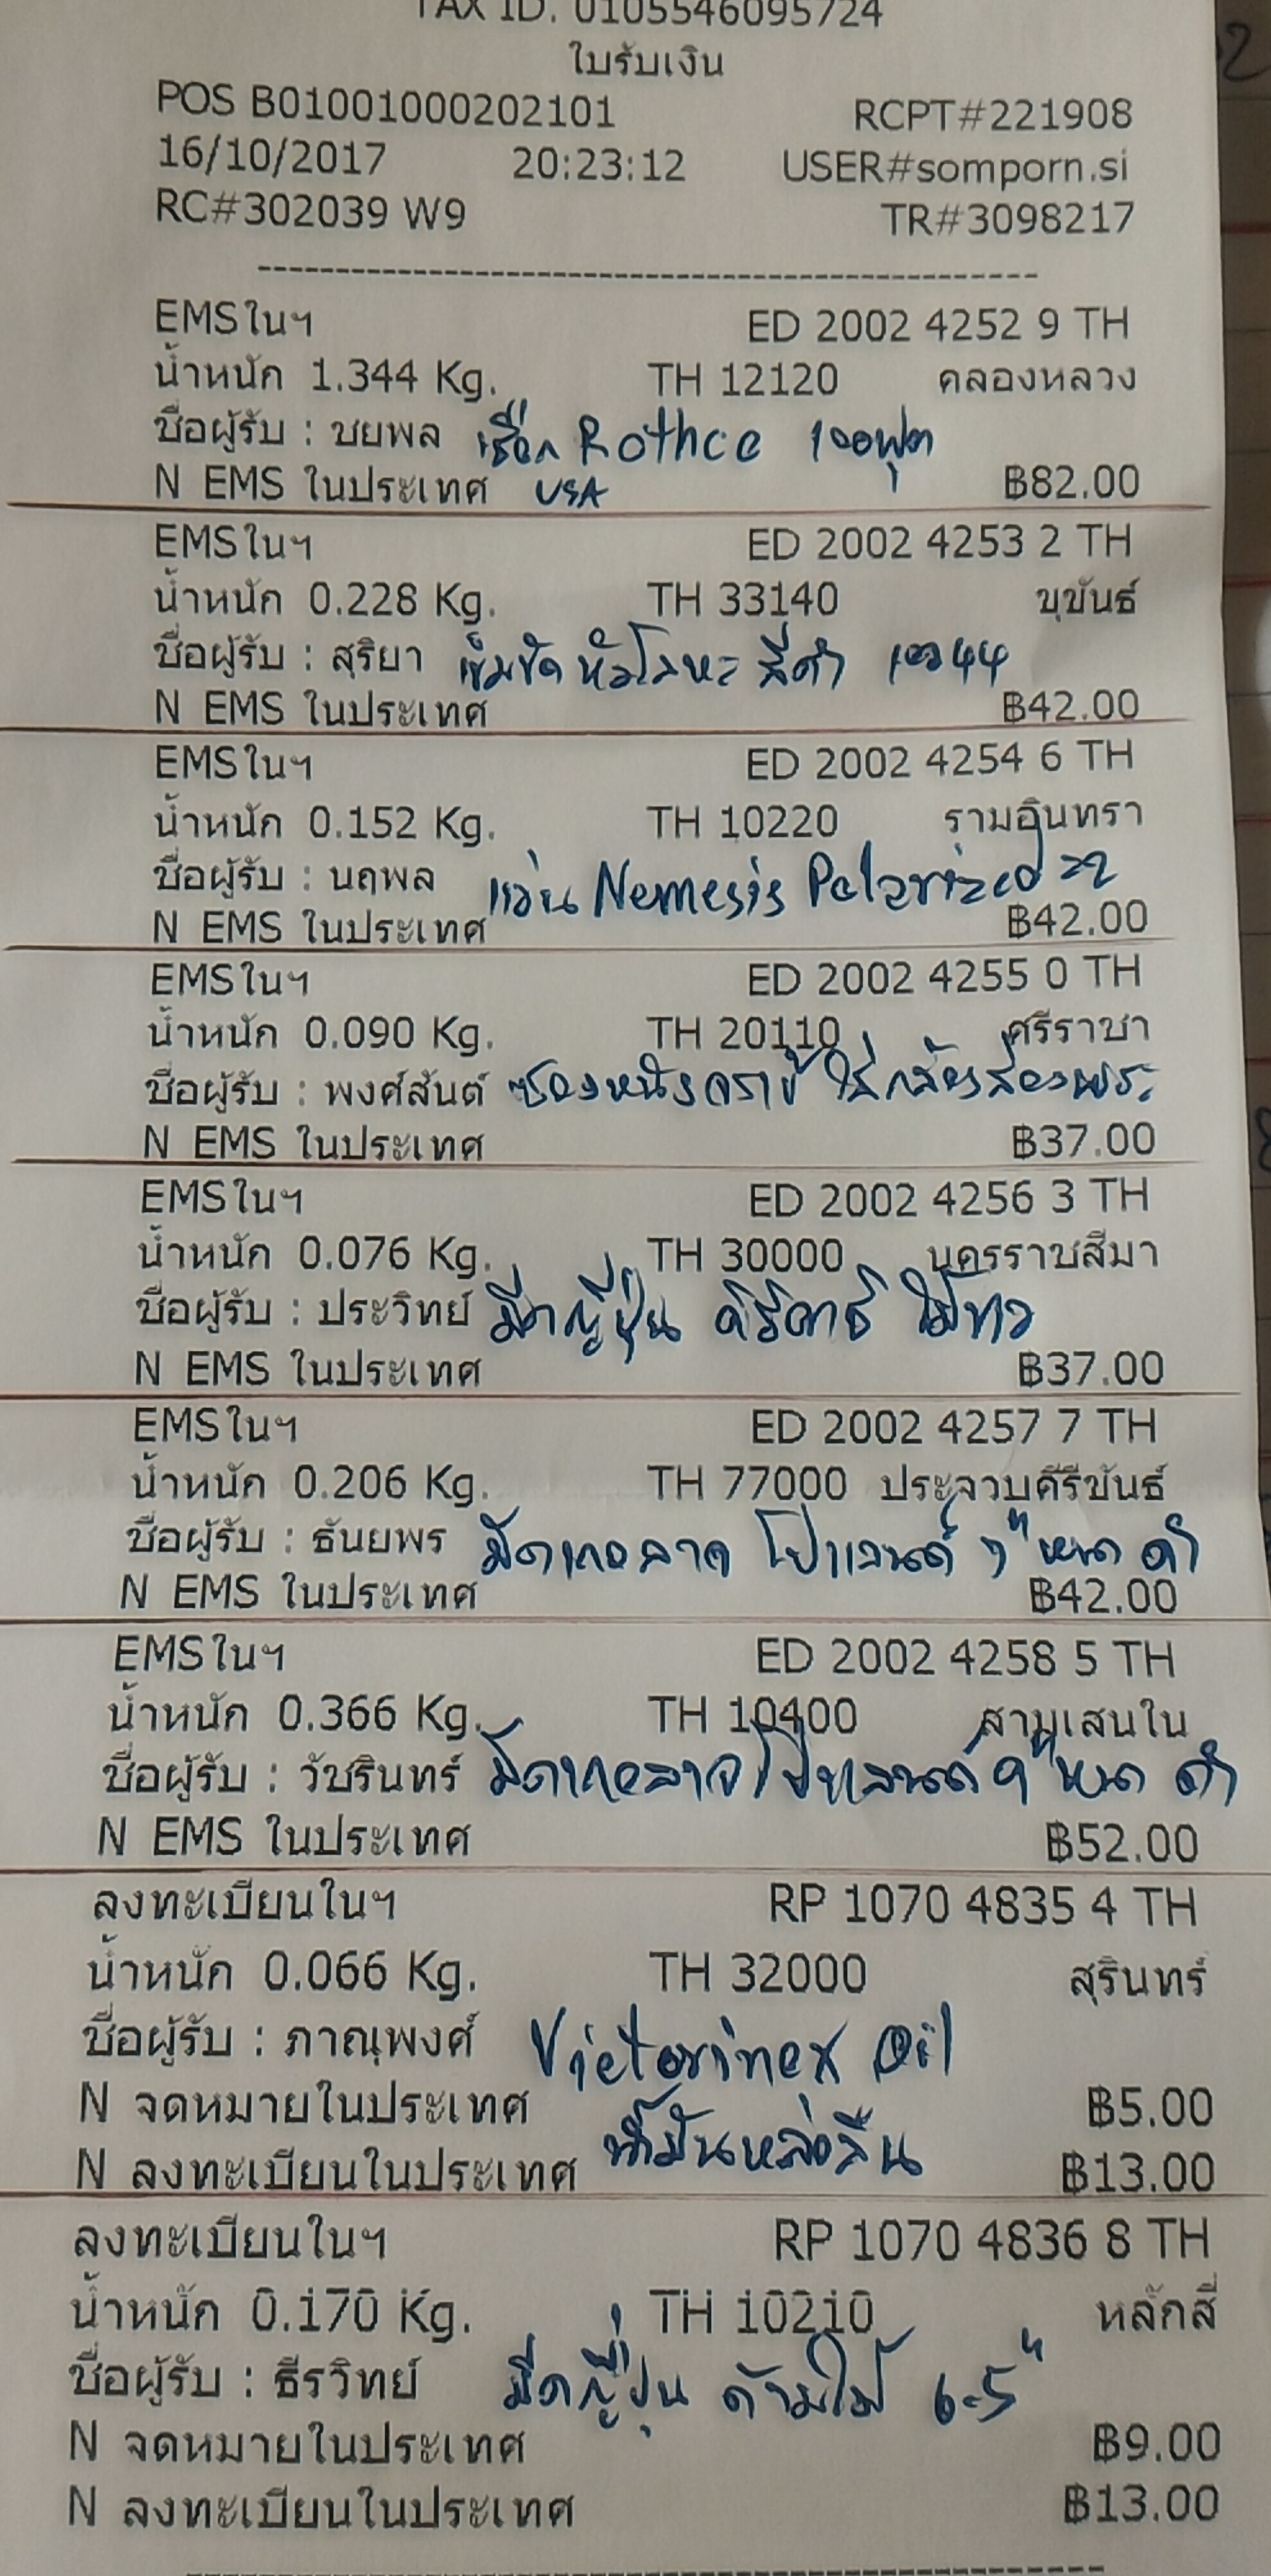 TAX ID. 0105546095724
ใบรับเงิน
POS B01001000202101 RCPT#221908
16/10/2017 20:23:12 USER#somporn.si
RC#302039 W9 TR#3098217
EMSในฯ ED 2002 4252 9 TH
น้ำหนัก 1.344 Kg. TH 12120 คลองหลวง
ชื่อผู้รับ : ชยพล เชือก Rothco 100ฟุต
N EMS ในประเทศ USA ฿82.00
EMSในฯ ED 2002 4253 2 TH
น้ำหนัก 0.228 Kg. TH 33140 ขุขันธ์
ชื่อผู้รับ : สุริยา เข็มขัด หัวโลหะ สีดำ เอว 44
N EMS ในประเทศ ฿42.00
EMSในฯ ED 2002 4254 6 TH
น้ำหนัก 0.152 Kg. TH 10220 รามอินทรา
ชื่อผู้รับ : นฤพล แว่น Nemesis Polarized
N EMS ในประเทศ ฿42.00
EMSในฯ ED 2002 4255 0 TH
น้ำหนัก 0.090 Kg. TH 20110 ศรีราชา
ชื่อผู้รับ : พงศ์สันต์ ซองหนังจรเข้ ใส่กล้องส่องพระ
N EMS ในประเทศ ฿37.00
EMSในฯ ED 2002 4256 3 TH
น้ำหนัก 0.076 Kg. TH 30000 นครราชสีมา
ชื่อผู้รับ : ประวิทย์ มีดญี่ปุ่น
N EMS ในประเทศ ฿37.00
EMSในฯ ED 2002 4257 7 TH
น้ำหนัก 0.206 Kg. TH 77000 ประจวบคีรีขันธ์
ชื่อผู้รับ : ธันยพร โปแลนด์ ดำ
N EMS ในประเทศ ฿42.00
EMSในฯ ED 2002 4258 5 TH
น้ำหนัก 0.366 Kg. TH 10400 สามเสนใน
ชื่อผู้รับ : วัชรินทร์ โปแลนด์ ดำ
N EMS ในประเทศ ฿52.00
ลงทะเบียนในฯ RP 1070 4835 4 TH
น้ำหนัก 0.066 Kg. TH 32000 สุรินทร์
ชื่อผู้รับ : ภาณุพงศ์ Victorinox Oil
N จดหมายในประเทศ ฿5.00
น้ำมันหล่อลื่น
N ลงทะเบียนในประเทศ ฿13.00
ลงทะเบียนในฯ RP 1070 4836 8 TH
น้ำหนัก 0.170 Kg. TH 10210 หลักสี่
ชื่อผู้รับ : ธีรวิทย์ มีดญี่ปุ่น ด้ามไม้ 6.5"
N จดหมายในประเทศ ฿9.00
N ลงทะเบียนในประเทศ ฿13.00